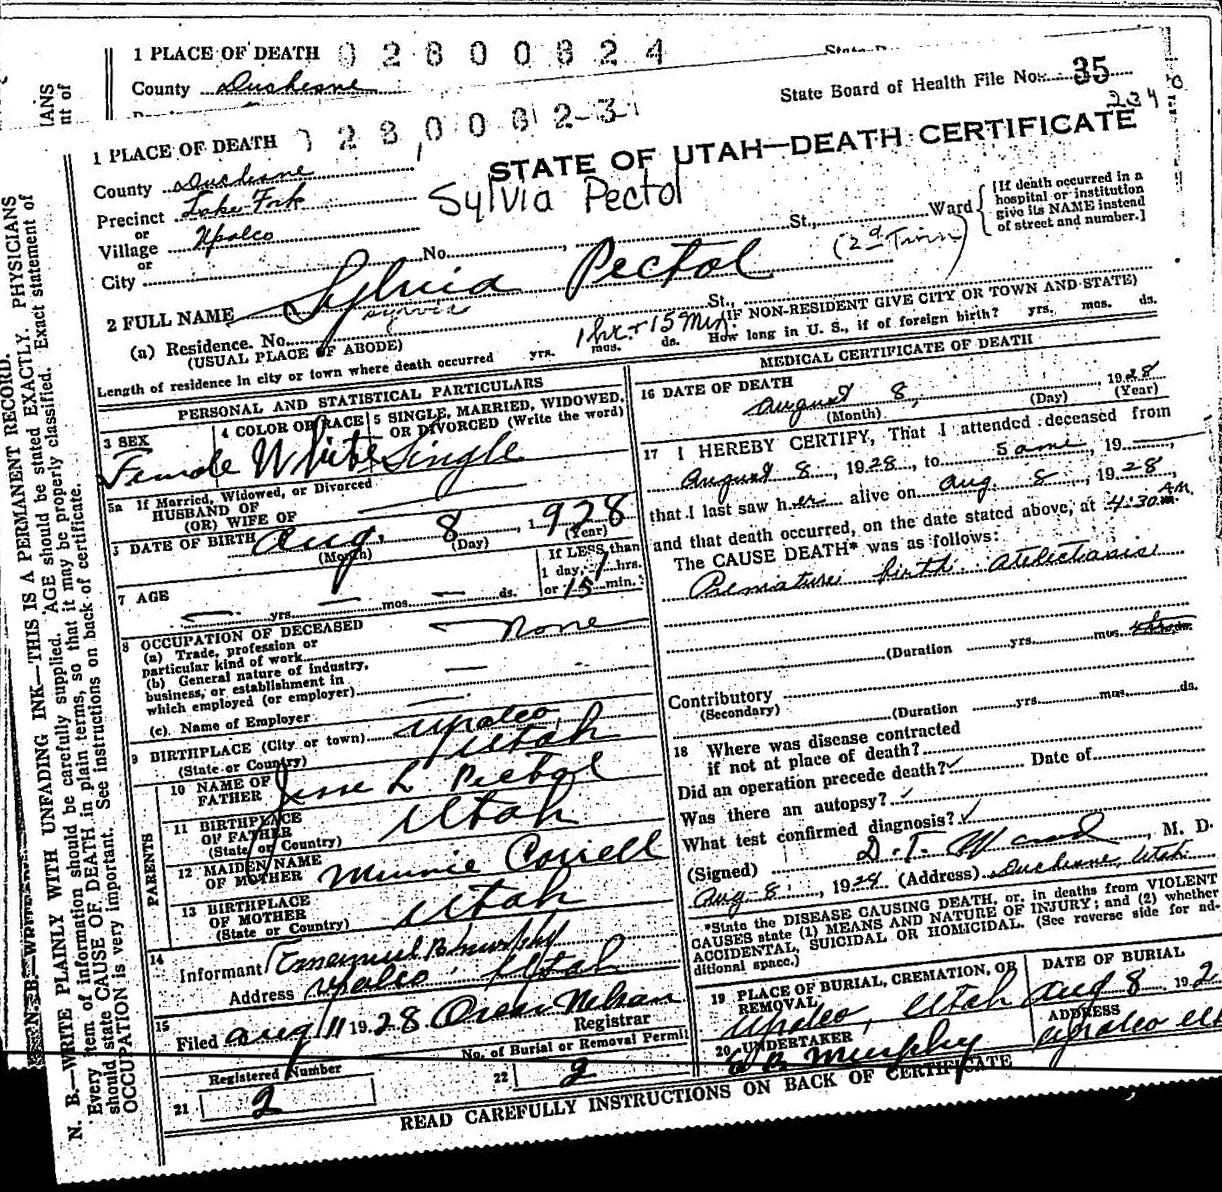 1 PLACE OF DEATH 02800824
County Duchesne
State Board of Health File No. 35
2340
1 PLACE OF DEATH 02800823
STATE OF UTAH—DEATH CERTIFICATE
County Duchesne
Sylvia Pectol
Precinct Lake Fork
or
Village Upalco
or
City No. St., Ward
[If death occurred in a hospital or institution give its NAME instead of street and number.]
(2d Twin)
2 FULL NAME Sylvia Pectol
Sylvia
(a) Residence. No. St.,
(USUAL PLACE OF ABODE) (IF NON-RESIDENT GIVE CITY OR TOWN AND STATE)
Length of residence in city or town where death occurred yrs. mos. ds. 1 hr + 15 Min. How long in U. S., if of foreign birth? yrs. mos. ds.
PERSONAL AND STATISTICAL PARTICULARS
3 SEX Female
4 COLOR OR RACE White
5 SINGLE, MARRIED, WIDOWED, OR DIVORCED (Write the word) Single
5a If Married, Widowed, or Divorced
HUSBAND OF
(OR) WIFE OF
DATE OF BIRTH Aug. 8, 1928
(Month) (Day) (Year)
7 AGE — yrs. — mos. — ds.
If LESS than
1 day, 1 hrs.
or 15 min.
8 OCCUPATION OF DECEASED
(a) Trade, profession or
particular kind of work None
(b) General nature of industry,
business, or establishment in
which employed (or employer)
(c) Name of Employer
9 BIRTHPLACE (City or town) Upalco,
(State or Country) Utah
PARENTS
10 NAME OF
FATHER Jesse L Pectol
11 BIRTHPLACE
OF FATHER
(State or Country) Utah
12 MAIDEN NAME
OF MOTHER Minnie
13 BIRTHPLACE
OF MOTHER
(State or Country) Utah
14
Informant Emanuel B Murphy
Address Upalco, Utah
15
Filed Aug 11 1928 Oscar Nelson
Registrar
Registered Number
21 2
No. of Burial or Removal Permit
22 2
MEDICAL CERTIFICATE OF DEATH
16 DATE OF DEATH August 8, 1928
(Month) (Day) (Year)
17 I HEREBY CERTIFY, That I attended deceased from
August 8, 1928, to Same, 19
that I last saw her alive on Aug. 8, 1928,
and that death occurred, on the date stated above, at 4:30 AM.
The CAUSE DEATH* was as follows:
Premature birth. atelectasis
(Duration yrs. mos.
Contributory
(Secondary) (Duration yrs. mos. ds.
18 Where was disease contracted
if not at place of death?
Did an operation precede death? ✓ Date of
Was there an autopsy? ✓
What test confirmed diagnosis? ✓
(Signed) D. T., M. D.
Aug 8, 1928 (Address) Duchesne, Utah
*State the DISEASE CAUSING DEATH, or, in deaths from VIOLENT
CAUSES state (1) MEANS AND NATURE OF INJURY; and (2) whether
ACCIDENTAL, SUICIDAL OR HOMICIDAL. (See reverse side for ad-
ditional space.)
19 PLACE OF BURIAL, CREMATION, OR
REMOVAL Upalco, Utah
DATE OF BURIAL
Aug 8 192
20 UNDERTAKER
E B Murphy
ADDRESS
Upalco
READ CAREFULLY INSTRUCTIONS ON BACK OF CERTIFICATE
N. B.—WRITE PLAINLY WITH UNFADING INK—THIS IS A PERMANENT RECORD.
Every item of information should be carefully supplied. AGE should be stated EXACTLY. PHYSICIANS
should state CAUSE OF DEATH in plain terms, so that it may be properly classified. Exact statement of
OCCUPATION is very important. See instructions on back of certificate.